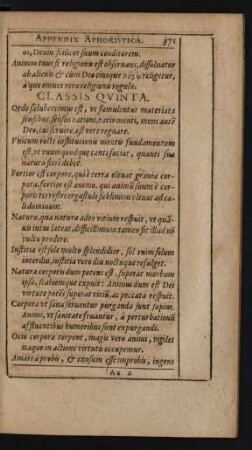 APPENDIX APHORISTICA. 371
os, Deum scilicet suum conditorem.
Animus tuus si religionis est observans, dissoluatur
ab alienis & cum Deo eiusque religetur,
à quo omnes vera religionis regulæ.
CLASSIS QVINTA.
Ordo saluberrimus est, vt famulentur materiata
sensibus, sensus rationi, ratio menti, mens autē
Deo, cui seruire, est verè regnare.
Vnicum rectè institutionis mentis fundamentum
est, vt vnumquodque tanti faciat, quanti sua
natura fieri debet.
Fortior est corpore, qui è terra eleuat grauia corpora,
fortior est animo, qui animū suum è corporis
terrestri ergastulo sublimem eleuat ad cælidominum.
Natura, qua natura adeo vitium respuit, vt quāuis
intus lateat, difficillimum tamen sit illud nō
vultu prodere.
Iustitia est sole multo splendidior, sol enim solum
interdiu, iustitia verò diu noctuque resulget.
Natura corporis dum potens est, superat morbum
ipsa, statimque expuit: Animus dum est Dei
virtute potēs superat vitiū, ac peccata respuit.
Corpora vt sana seruentur purganda sunt sæpius.
Animi, vt sanitate fruantur, à perturbationū
affluentibus humoribus sunt expurgandi.
Otio corpora torpent, magis verò animi, vigiles
itaque in actione virtutis occupemur.
Amari à probis, & exosum esse improbis, ingens
Aa 2